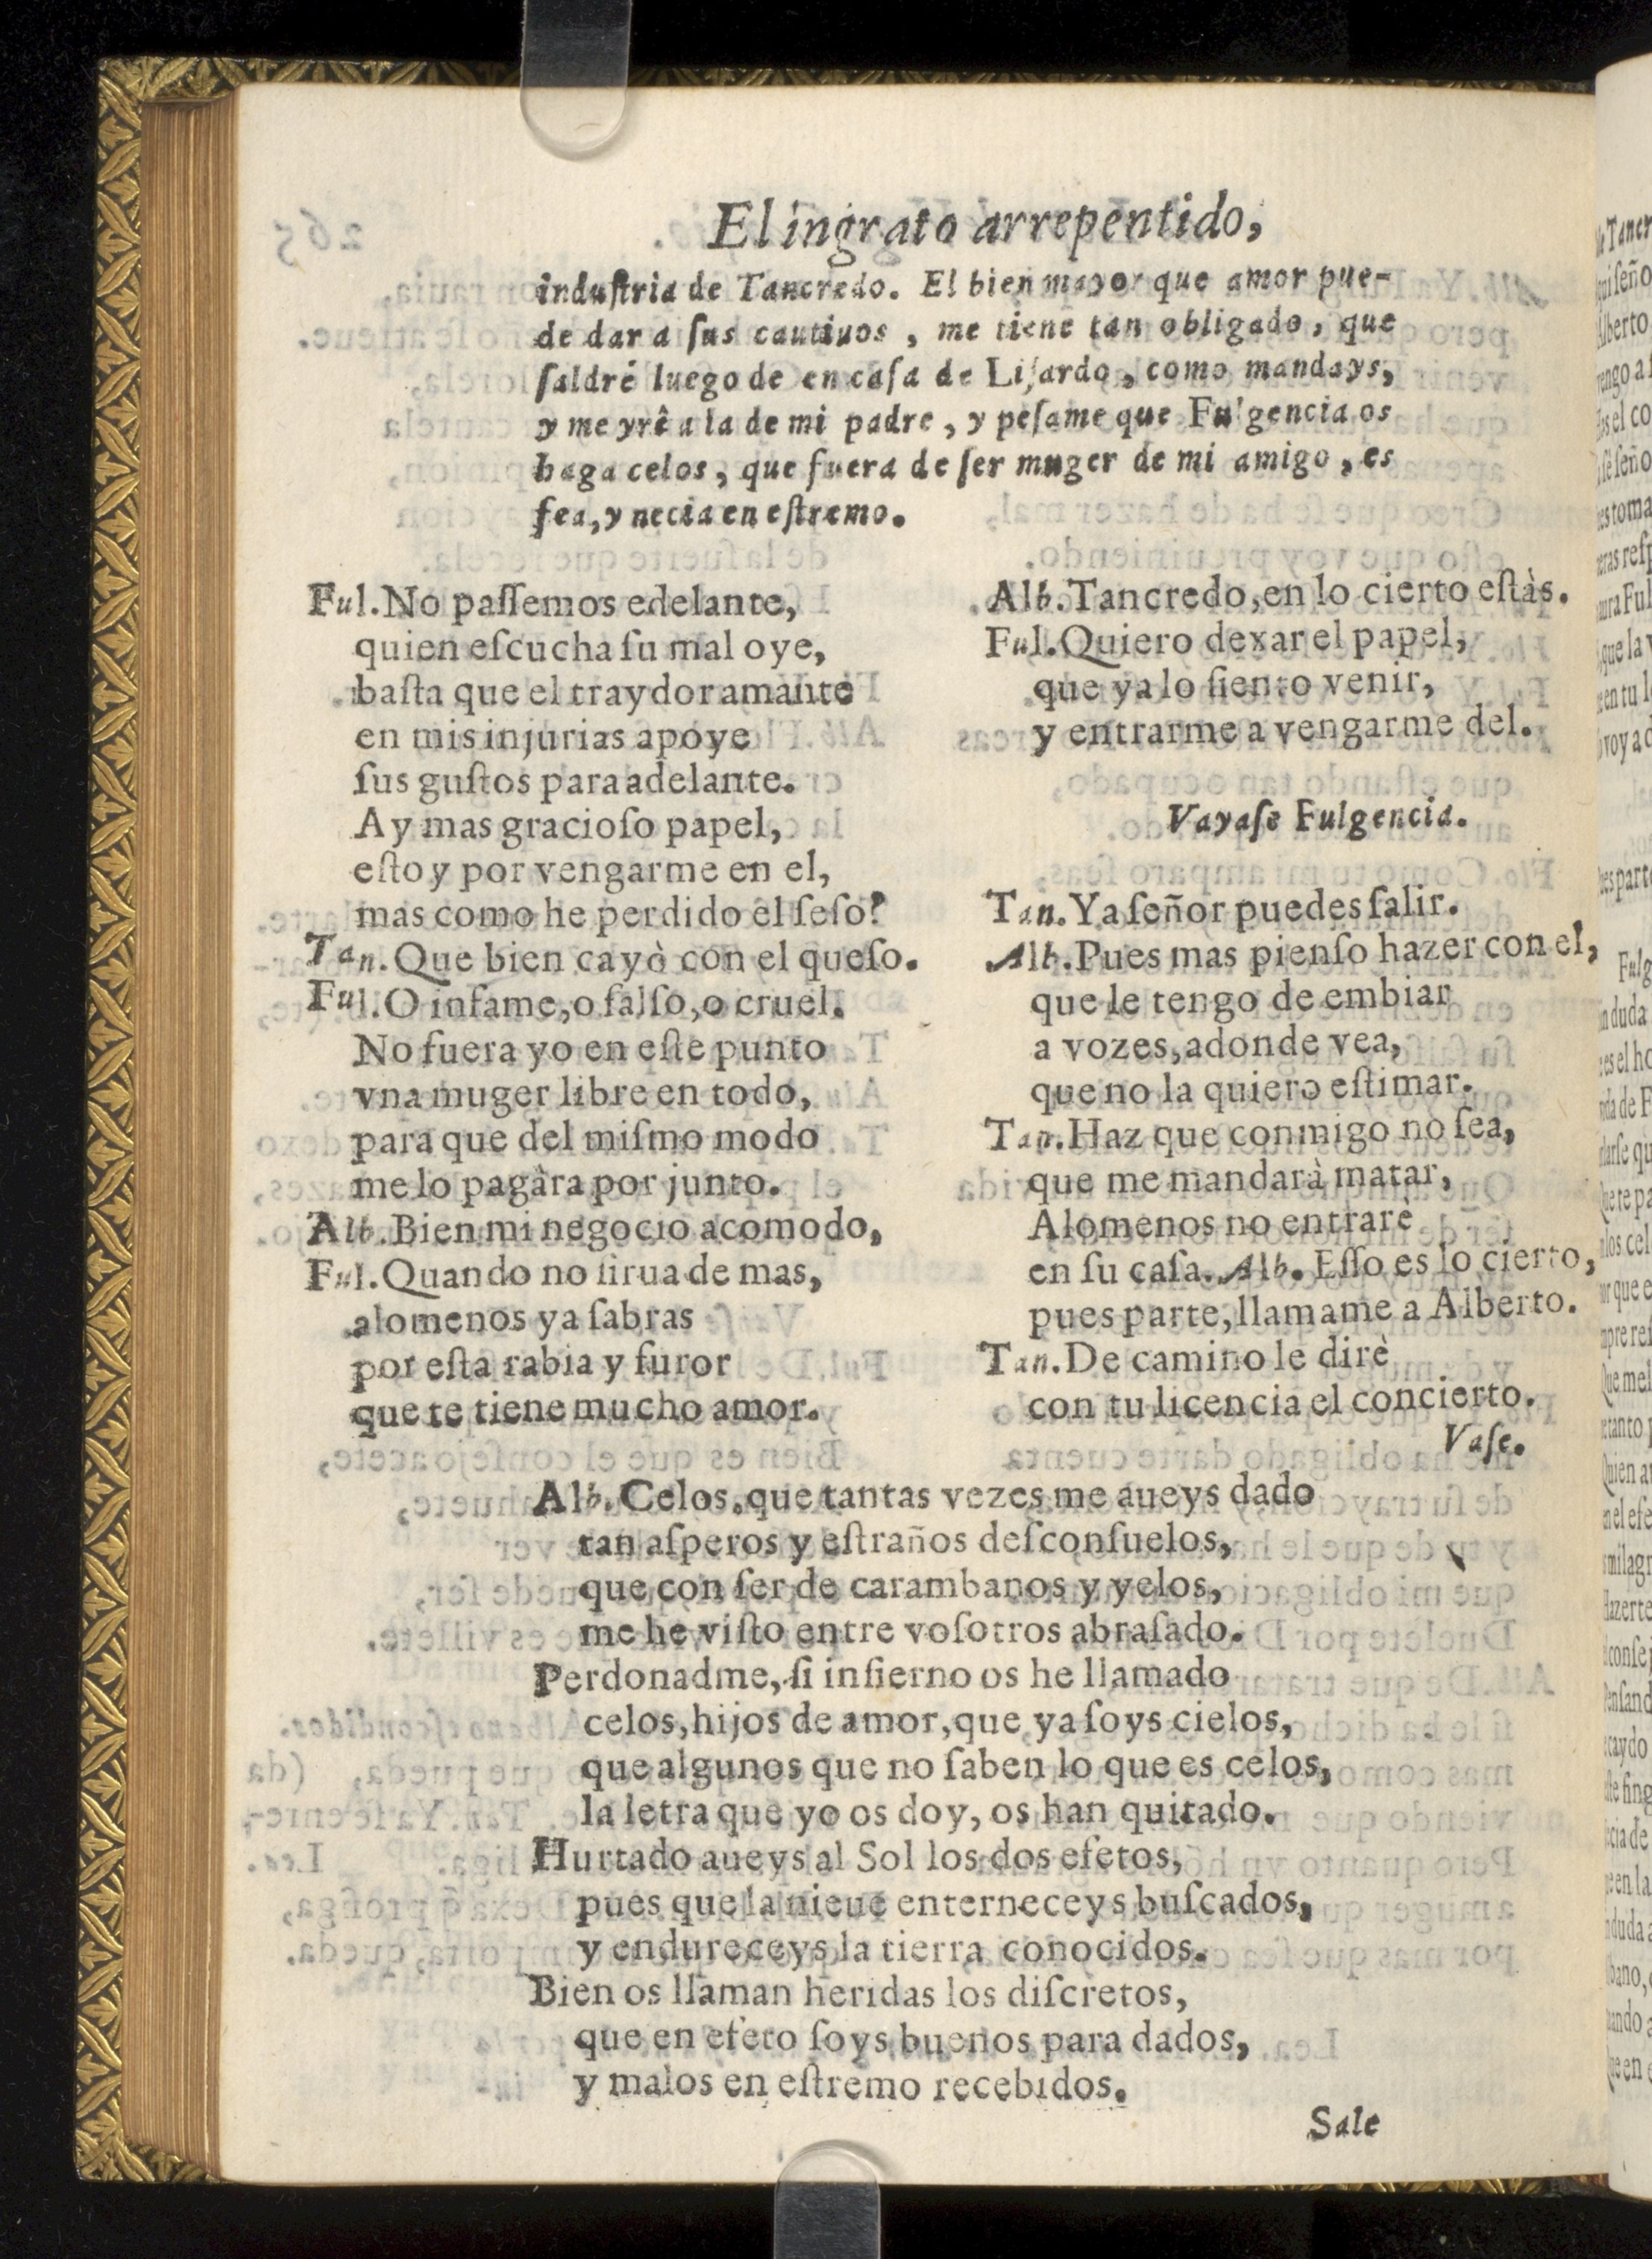 El ingrato arrepentido,
induſtria de Tancredo. El bien mayor que amor pue-
de dar a ſus cautiuos, me tiene tan obligado, que
ſaldré luego de en caſa de Liſardo, como mandays,
y me yrê a la de mi padre, y peſame que Fulgencia os
haga celos, que fuera de ſer muger de mi amigo, es
fea, y necia en eſtremo.
Ful. No paſſemos edelante,
quien eſcucha ſu mal oye,
baſta que el traydor amante
en mis injurias apoye
ſus guſtos para adelante.
Ay mas gracioſo papel,
eſtoy por vengarme en el,
mas como he perdido el ſeſo?
Tan. Que bien cayò con el queſo.
Ful. O infame, o falſo, o cruel.
No fuera yo en eſte punto
vna muger libre en todo,
para que del miſmo modo
me lo pagàra por junto.
Alb. Bien mi negocio acomodo,
Ful. Quando no ſirua de mas,
alomenos ya ſabras
por eſta rabia y furor
que te tiene mucho amor.
Alb. Tancredo, en lo cierto eſtàs.
Ful. Quiero dexar el papel,
que ya lo ſiento venir,
y entrarme a vengarme del.
Vayaſe Fulgencia.
Tan. Ya ſeñor puedes ſalir.
Alb. Pues mas pienſo hazer con el,
que le tengo de embiar
a vozes, adonde vea,
que no la quiero eſtimar.
Tan. Haz que conmigo no ſea,
que me mandarà matar,
Alomenos no entrarè
en ſu caſa. Alb. Eſſo es lo cierto,
pues parte, llamame a Alberto.
Tan. De camino le dirè
con tu licencia el concierto.
Vaſe.
Alb. Celos, que tantas vezes me aueys dado
tan aſperos y eſtraños deſconſuelos,
que con ſer de carambanos y yelos,
me he viſto entre voſotros abraſado.
Perdonadme, ſi infierno os he llamado
celos, hijos de amor, que ya ſoys cielos,
que algunos que no ſaben lo que es celos,
la letra que yo os doy, os han quitado.
Hurtado aueys al Sol los dos efetos,
pues que la nieue enterneceys buſcados,
y endureceys la tierra conocidos.
Bien os llaman heridas los diſcretos,
que en efeto ſoys buenos para dados,
y malos en eſtremo recebidos.
Sale